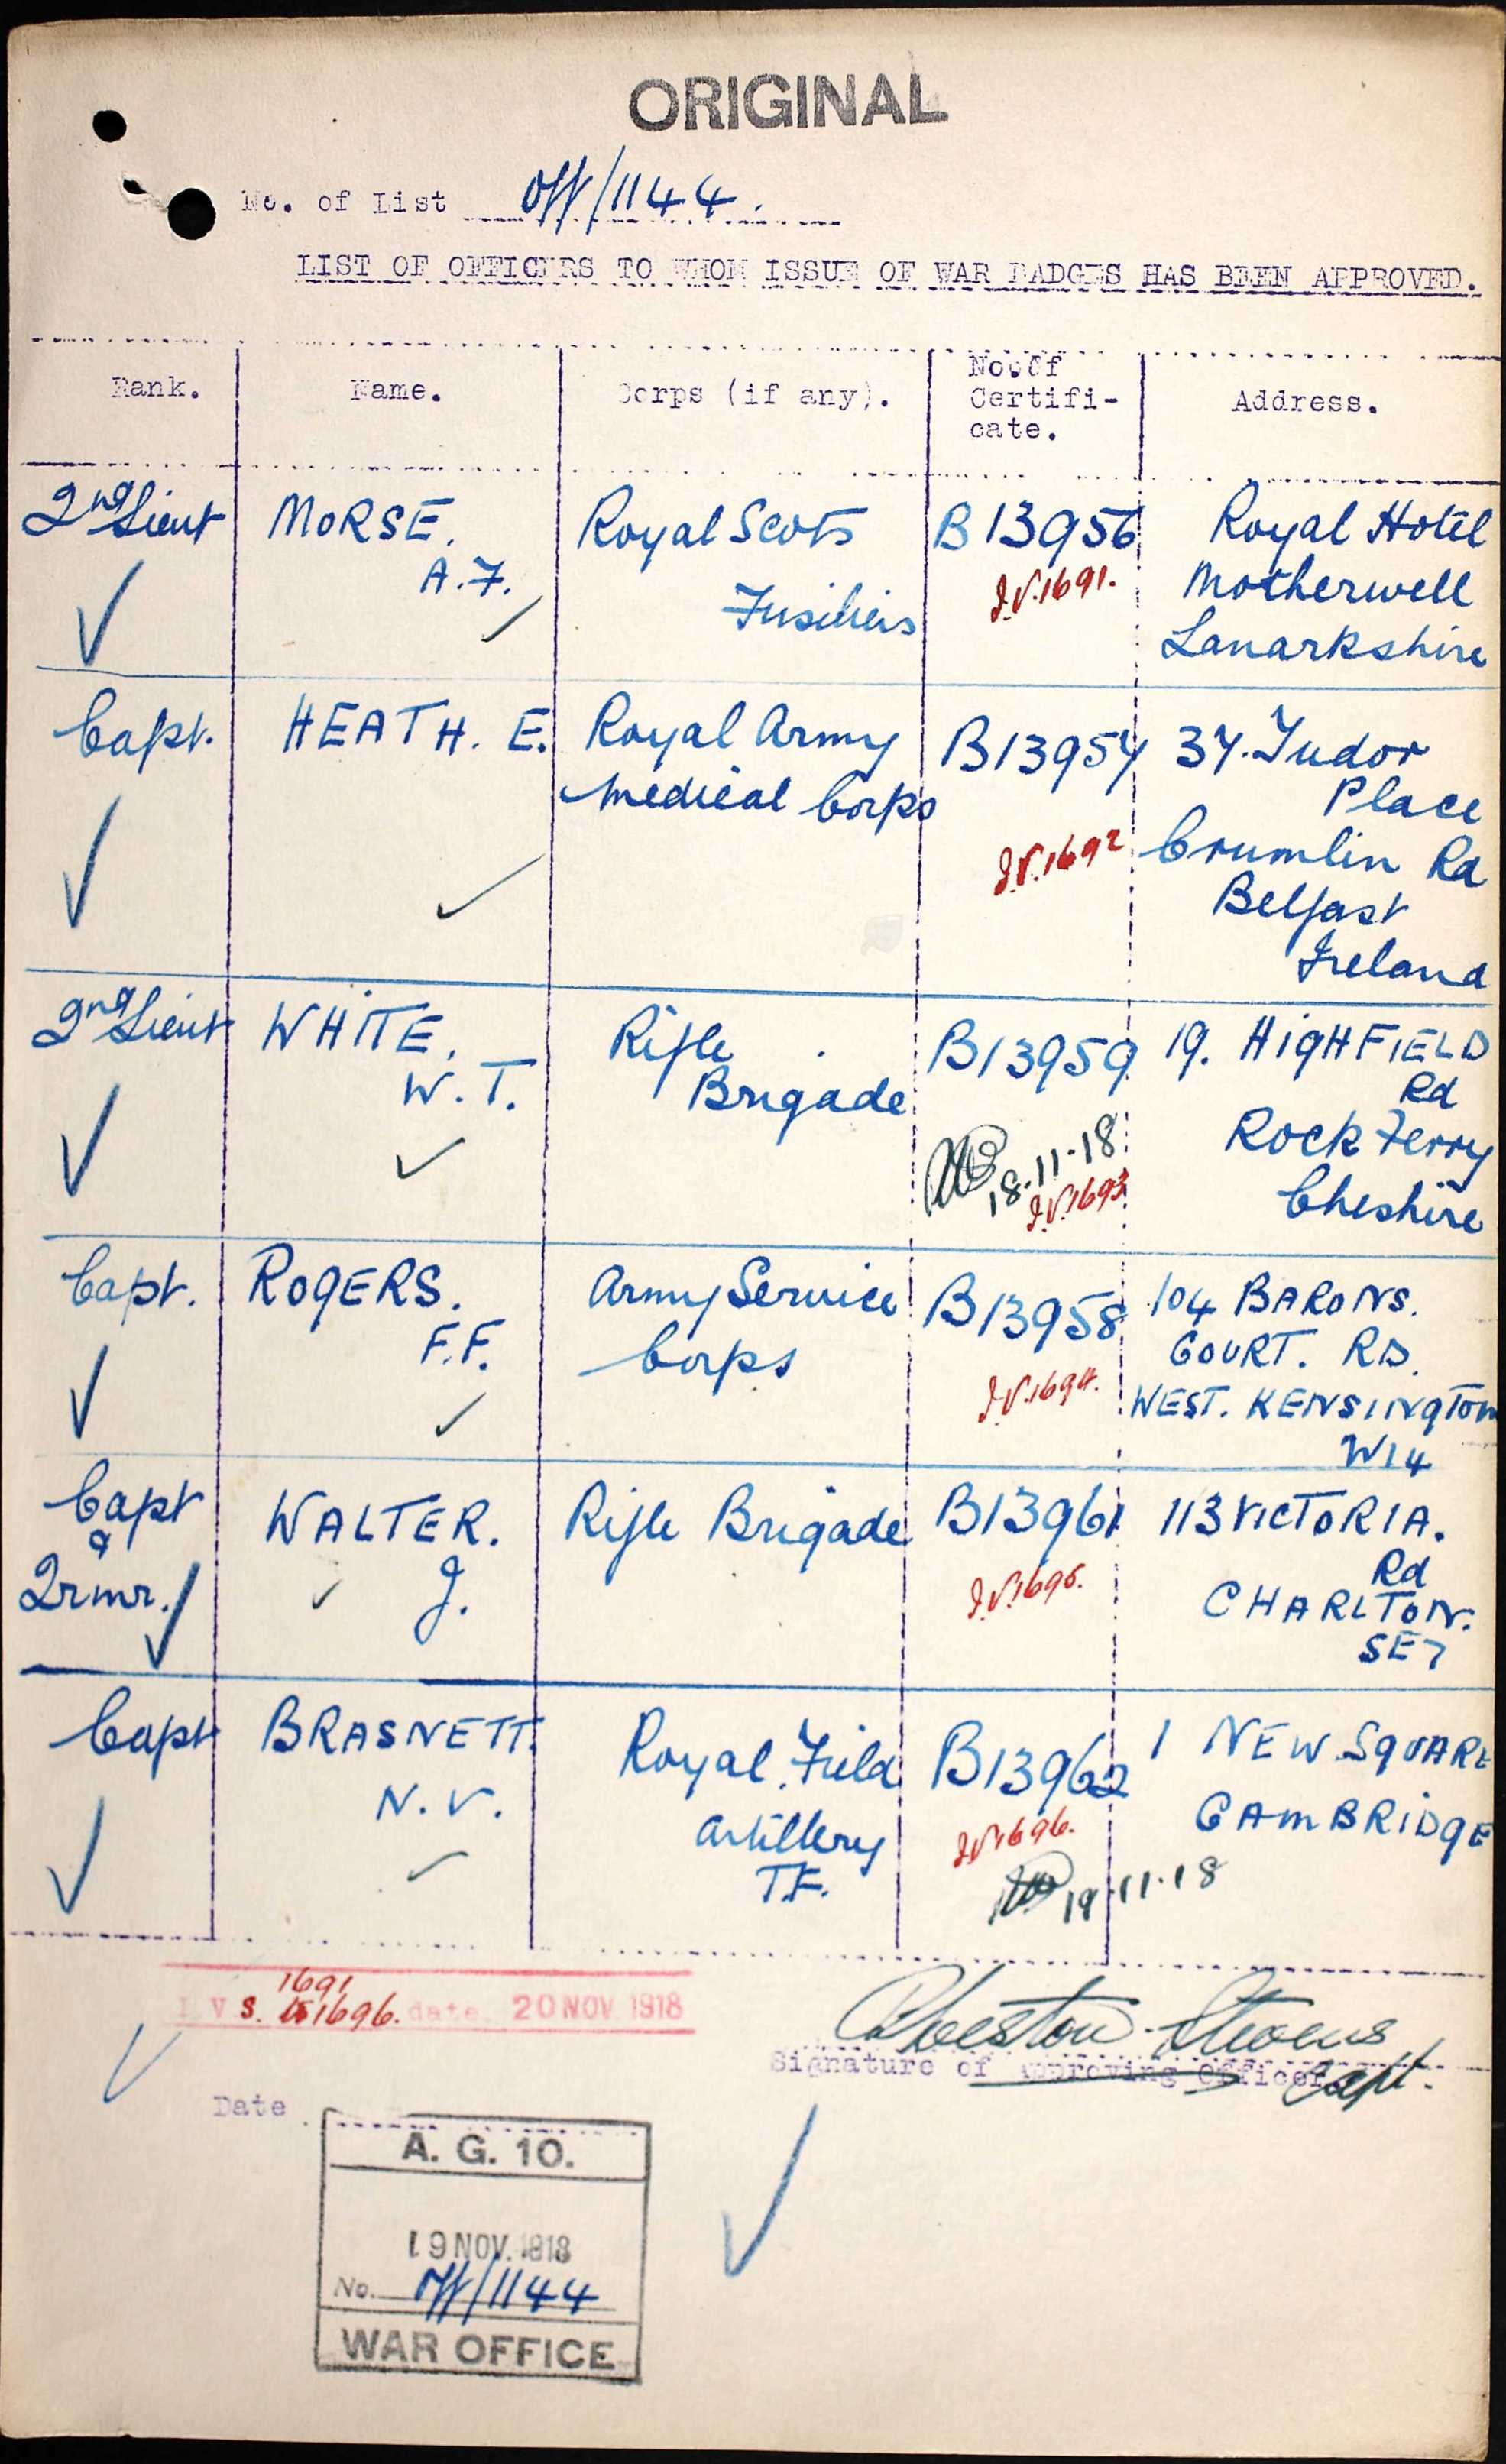 ORIGINAL
No. of List Off/1144.
LIST OF OFFICERS TO WHOM ISSUE OF WAR BADGES HAS BEEN APPROVED.
Rank. Name. Corps (if any). No. of Certifi-cate. Address.
2nd Lieut MORSE. Royal Scots B13956 Royal Hotel
A.F. Fusiliers I.V.1691. Motherwell
Lanarkshire
Capt. HEATH. E. Royal Army B13957 37. Tudor
Medical Corps Place
I.V.1692 Crumlin Rd
Belfast
Ireland
2nd Lieut WHITE. Rifle B13959 19. HIGHFIELD
W.T. Brigade Rd
18.11.18 Rock Ferry
I.V.1693 Cheshire
Capt. ROGERS. Army Service B13958 104 BARONS.
F.F. Corps COURT. RD.
I.V.1694. WEST. KENSINGTON
W14
Capt WALTER. Rifle Brigade B13961 113 VICTORIA.
& Rd
Qrmr. J. I.V.1695. CHARLTON.
SE7
Capt BRASNETT. Royal Field B13962 1 NEW SQUARE
N.V. Artillery I.V.1696. CAMBRIDGE
T.F. 19.11.18
1691
I V S. to 1696. date 20 NOV 1918
Stevens
Signature of Approving Officer. Capt.
Date
A. G. 10.
19 NOV. 1918
No. Off/1144
WAR OFFICE